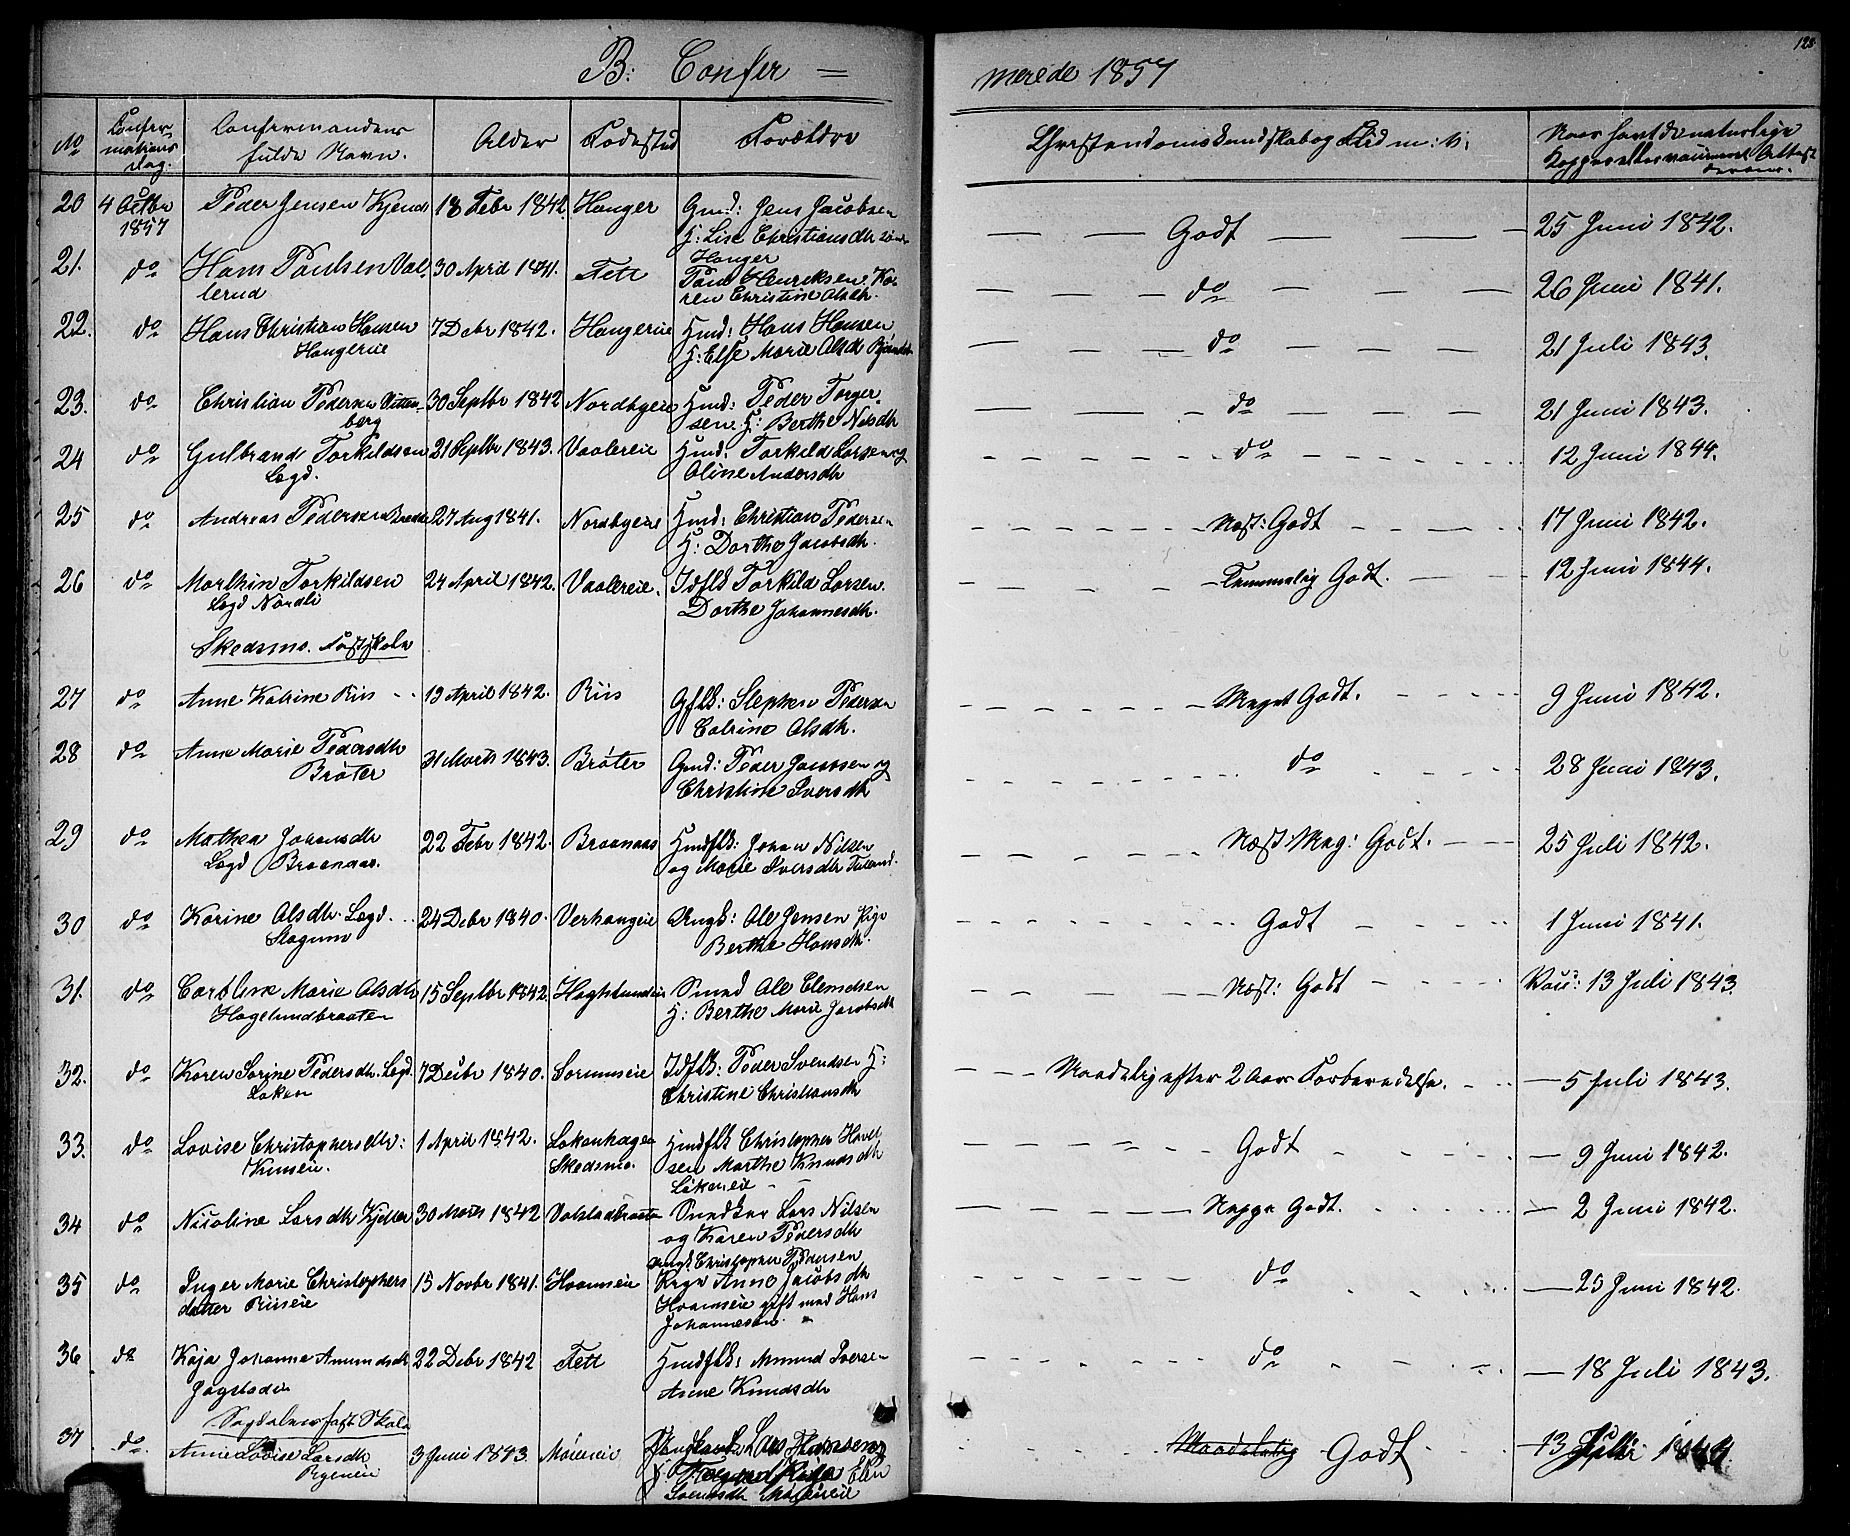 B: Confer =
merede 1857
128
No
Confer
mations
dag.
Confirmandens
fulde Navn.
Alder
Fødested
Forældre
Christendomskundskab og Flid m: v:
Naar havt de naturlige
Kopper eller vaccineret Attest
derom.
20 4 Octbr 1857 Peder Jensen Kjend 18 Febr 1842 Hanger Gmd: Jens Jacobsen
H: Lise Christiansdtr
Hanger
Godt 25 Juni 1842.
21. do Hans Paulsen Val-
lerud
30 April 1841. Fett Paul Henriksen. Ka-
ren Christine Olsdtr.
do 26 Juni 1841.
22. do Hans Christian Hansen
Hangereie
7 Debr 1842. Hangereie Hmd: Hans Hansen
H: Else Marie Olsd
do 21 Juli 1843.
23. do Christian Pedersen Vitten-
berg
30 Septbr 1842 Nordbyeie Hmd: Peder Torger-
sen. H: Berthe Nilsdtr
do 21 Juni 1843.
24 do Gulbrand Torkildsen
Legd.
21 Septbr 1843. Vaalereie Hmd: Torkild Larsen og
Oline Andersdtr
do 12 Juni 1844.
25 do Andreas Pedersen 27 Aug 1841. Nordbyeie Hmd: Christian Pedersen
H: Dorthe Jacobsdtr.
Næst: Godt 17 Juni 1842.
26 do Marthin Torkildsen
Legd Nordli
24 April 1842. Vaalereie. Idflk Torkild Larsen.
Dorthe Johannesdtr.
Temmelig Godt. 12 Juni 1844.
Skedsmo. Fastskole
27 do Anne Katrine Riis 13 April 1842. Riis Gflk: Stephen Pedersen
Catrine Olsdtr.
Meget Godt. 9 Juni 1842.
28 do Anne Marie Pedersdtr
Brøter
31 Marts 1843. Brøter Gmd: Peder Jacobsen og
Christine Iversdtr
do 28 Juni 1843.
29 do Mathea Johansdtr
Legd Braanaas.
22 Febr 1842. Braanaas Hmdflk: Johan Nilsen
og Marie Iversdtr
Næst: Meg: Godt. 25 Juli 1842.
30 do Karine Olsdtr. Legd.
Slagum
24 Debr 1840. Verhangeie Ungk: Ole Jensen Pige
Berthe Hansdtr.
Godt 1 Juni 1841.
31. do Caroline Marie Olsdtr
Hagelundbraaten
15 Septbr 1842 Smed Ole Clemetsen
H: Berthe Marie Jacobsdtr
Næst: Godt 13 Juli 1843.
32. do Karen Sorine Pedersdtr. Legd.
Løken
7 Decbr 1840. Sørumseie Idflk: Peder Svendsen H:
Christine Christiansdtr
Maadelig efter 2 Aars Forberedelse. 5 Juli 1843.
33. do Lovise Christophersdtr:
1 April 1842. Løkenhagen
Skedsmo.
Hmdflk Christopher Havel
sen Marthe Knudsdtr
Løkeneie
Godt 9 Juni 1842.
34 do Nicoline Larsdtr Kjeller 30 Marts 1842 Valstadbraaten Smedker Lars Nilsen
og Karen Pedersdtr
Neppe Godt. 2 Juni 1842.
35 do Inger Marie Christophers
datter Riiseie
15 Novbr 1841. Hvamseie Ungk Christopher Pedersen
Anne Jacobsdtr
Hvamseie gift med Hans
Johannesen.
do 25 Juni 1842.
36 do Kaja Johanne Amundsdtr
22 Debr 1842 Fett Hmdflk: Amund Iversen
Anne Knudsdtr
do 18 Juli 1843.
Sagdalens fast Skole
37 do. Anne Lovise Larsdtr
Ryeneie
3 Juni 1843. Møreneie Lars Hansen
Elen
Svendsdtr
Maadelig Godt 13 Juli